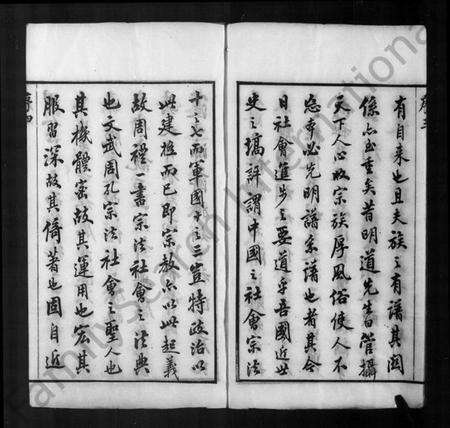 有自来也且夫族之有譜其関
係亦重矣昔明道先生曰管攝
天下人心收宗族厚風俗使人不
忘本必先明譜系譜也者其今
日社會進步之要道乎吾國近世
史之場評謂中國之社會宗法
十之七而軍國之三豈特政治以
此建極而已即宗教亦以此起義
故周禮一書宗法社會之法典
也文武周孔宗法社會之聖人也
其機體密故其運用也宏其
服習深故其儔著也固自近
序四
FamilySearch International